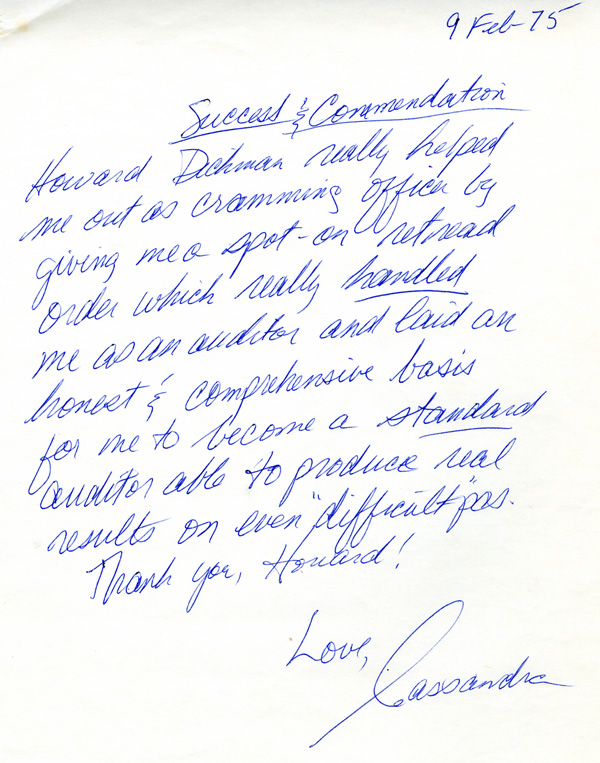 9 Feb-75
Success & Commendation
Howard Dickman really helped
me out as cramming officer by
giving me a spot-on retread
order which really handled
me as an auditor and laid an
honest & comprehensive basis
for me to become a standard
auditor able to produce real
results on even "difficult" pcs.
Thank you, Howard!
Love,
Cassandra